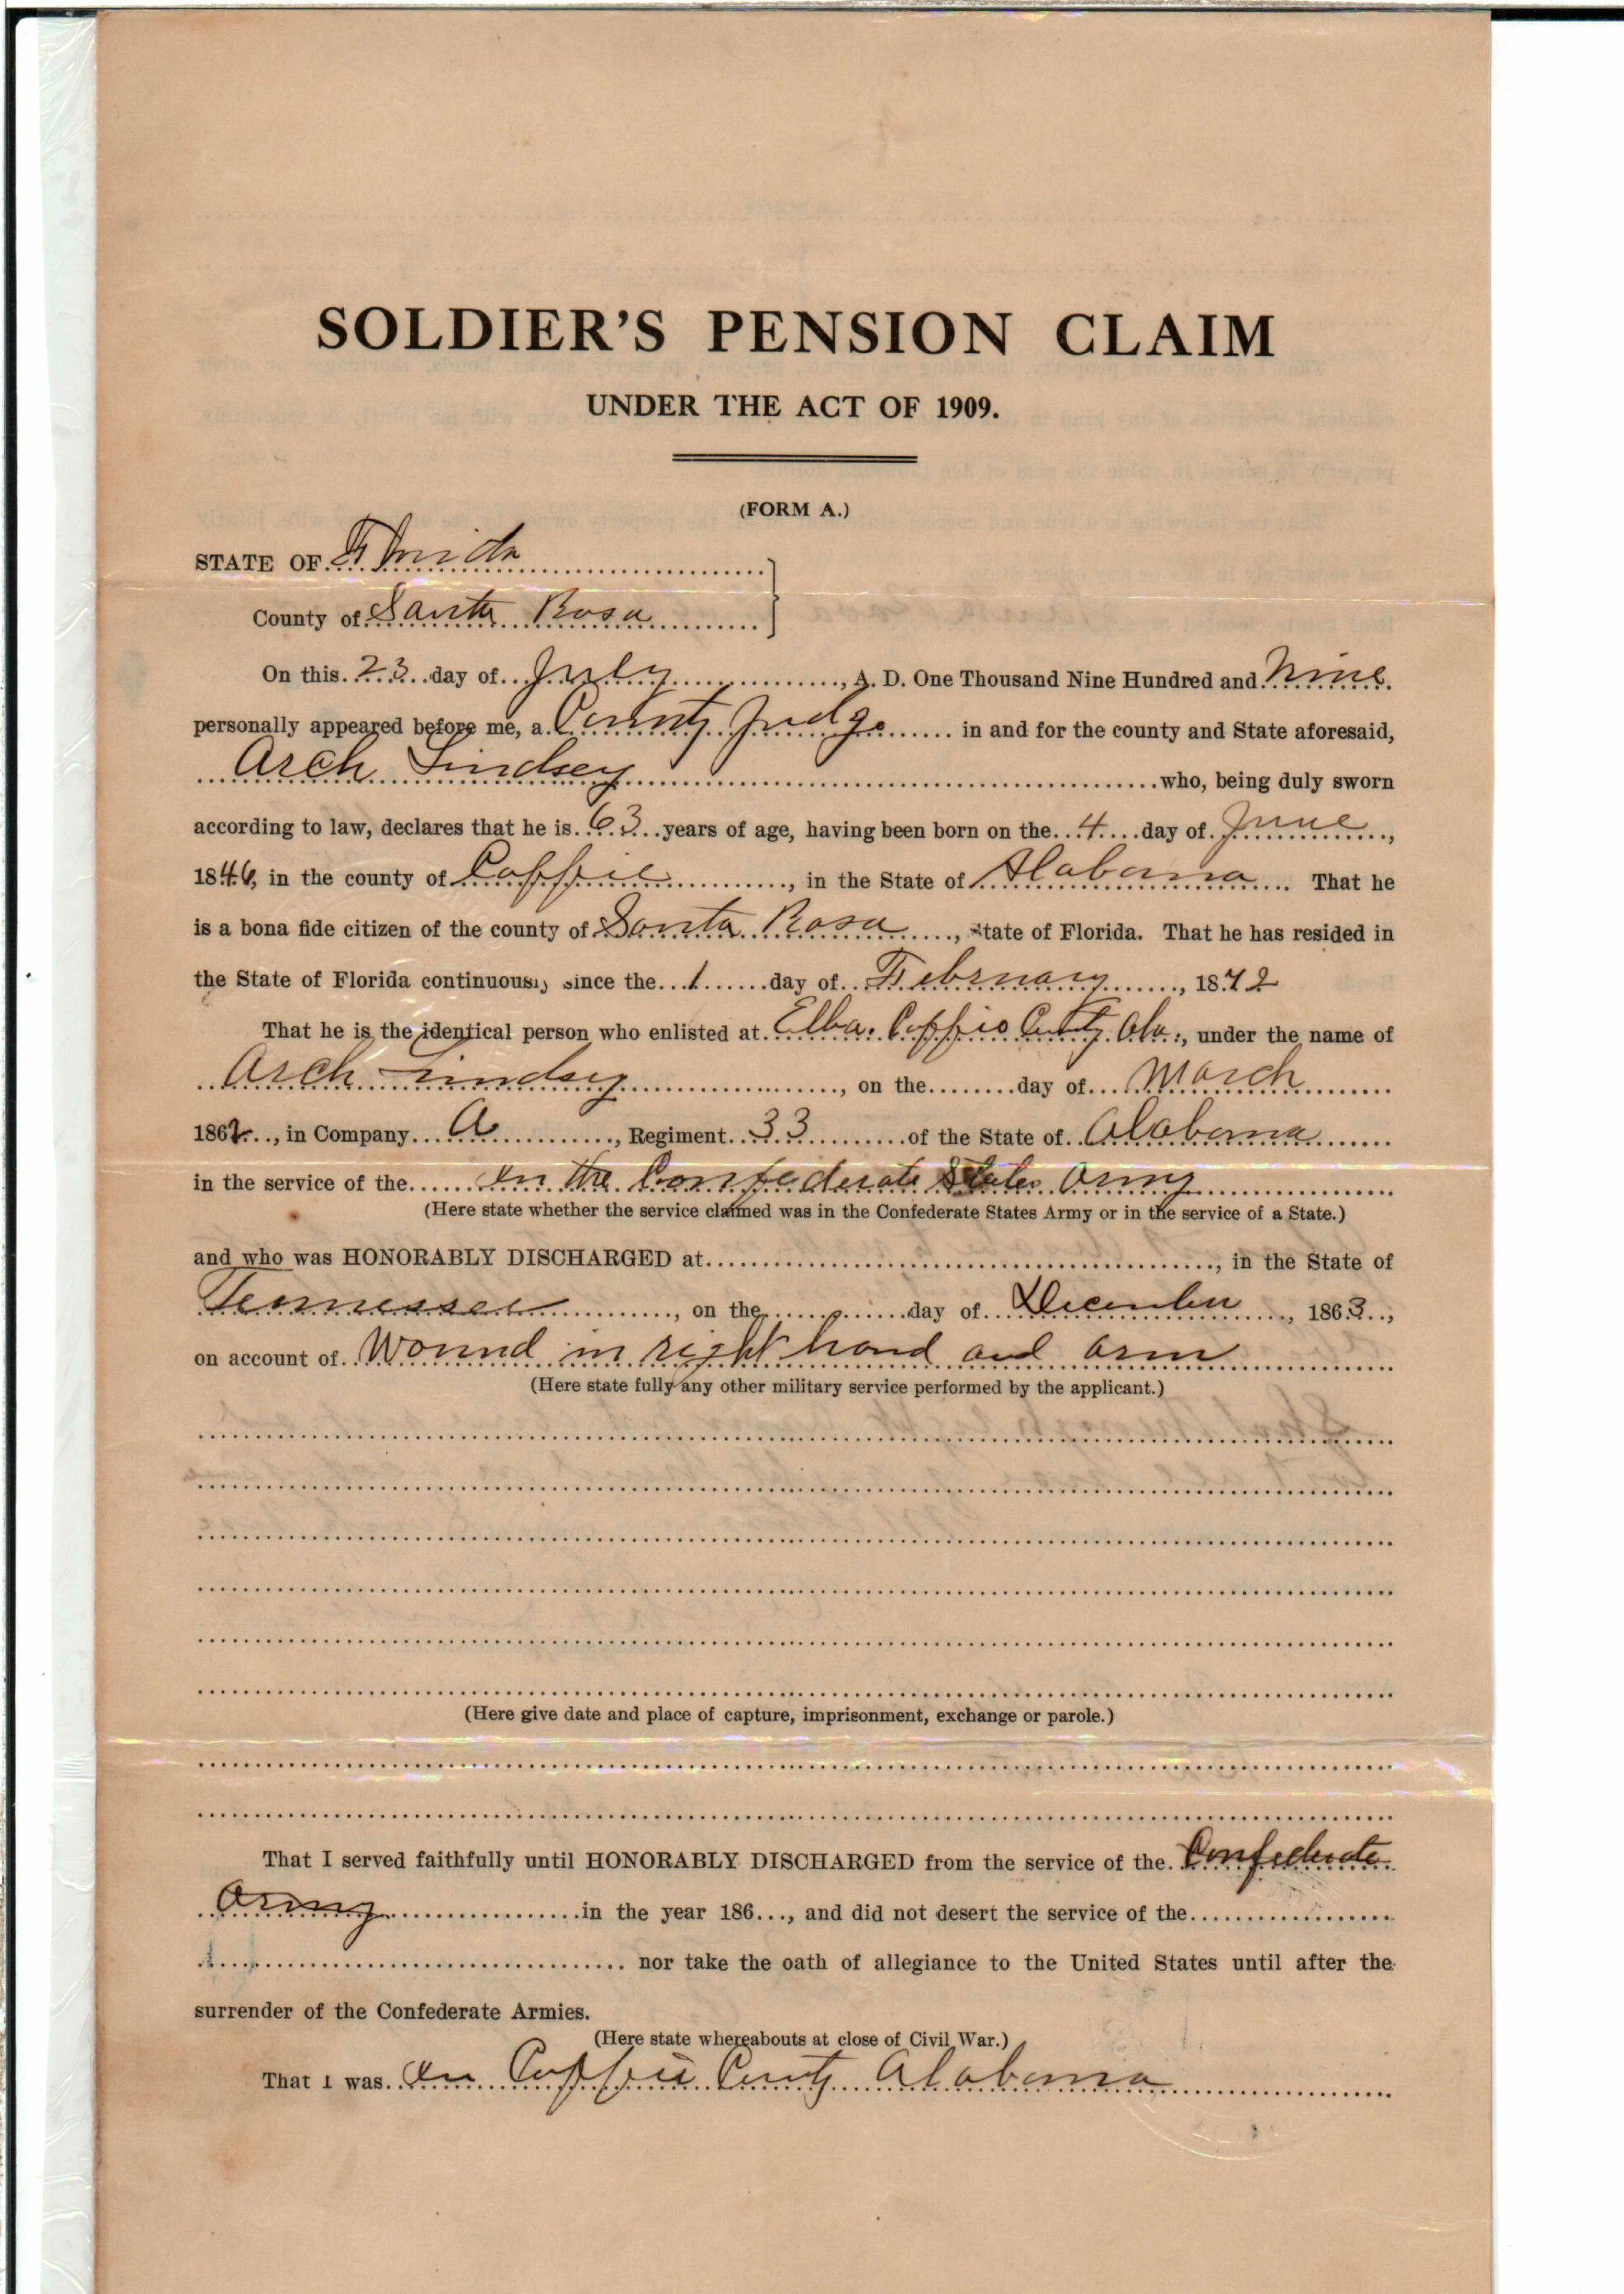 SOLDIER'S PENSION CLAIM
UNDER THE ACT OF 1909.
(FORM A.)
STATE OF Florida
County of Santa Rosa
On this 23 day of July, A. D. One Thousand Nine Hundred and Nine
personally appeared before me, a County Judge in and for the county and State aforesaid,
Arch Lindsey who, being duly sworn
according to law, declares that he is 63 years of age, having been born on the 4 day of June,
1846, in the county of Coffie, in the State of Alabama. That he
is a bona fide citizen of the county of Santa Rosa, State of Florida. That he has resided in
the State of Florida continuously since the 1 day of February, 1872
That he is the identical person who enlisted at Elba, Coffie County Ala., under the name of
Arch Lindsey, on the day of March
1862, in Company A, Regiment 33 of the State of Alabama
in the service of the In the Confederate States Army
(Here state whether the service claimed was in the Confederate States Army or in the service of a State.)
and who was HONORABLY DISCHARGED at, in the State of
Tennessee, on the day of December, 1863,
on account of Wound in right hand and arm
(Here state fully any other military service performed by the applicant.)
(Here give date and place of capture, imprisonment, exchange or parole.)
That I served faithfully until HONORABLY DISCHARGED from the service of the Confederate
Army in the year 186..., and did not desert the service of the
nor take the oath of allegiance to the United States until after the
surrender of the Confederate Armies.
(Here state whereabouts at close of Civil War.)
That I was In Coffie County Alabama